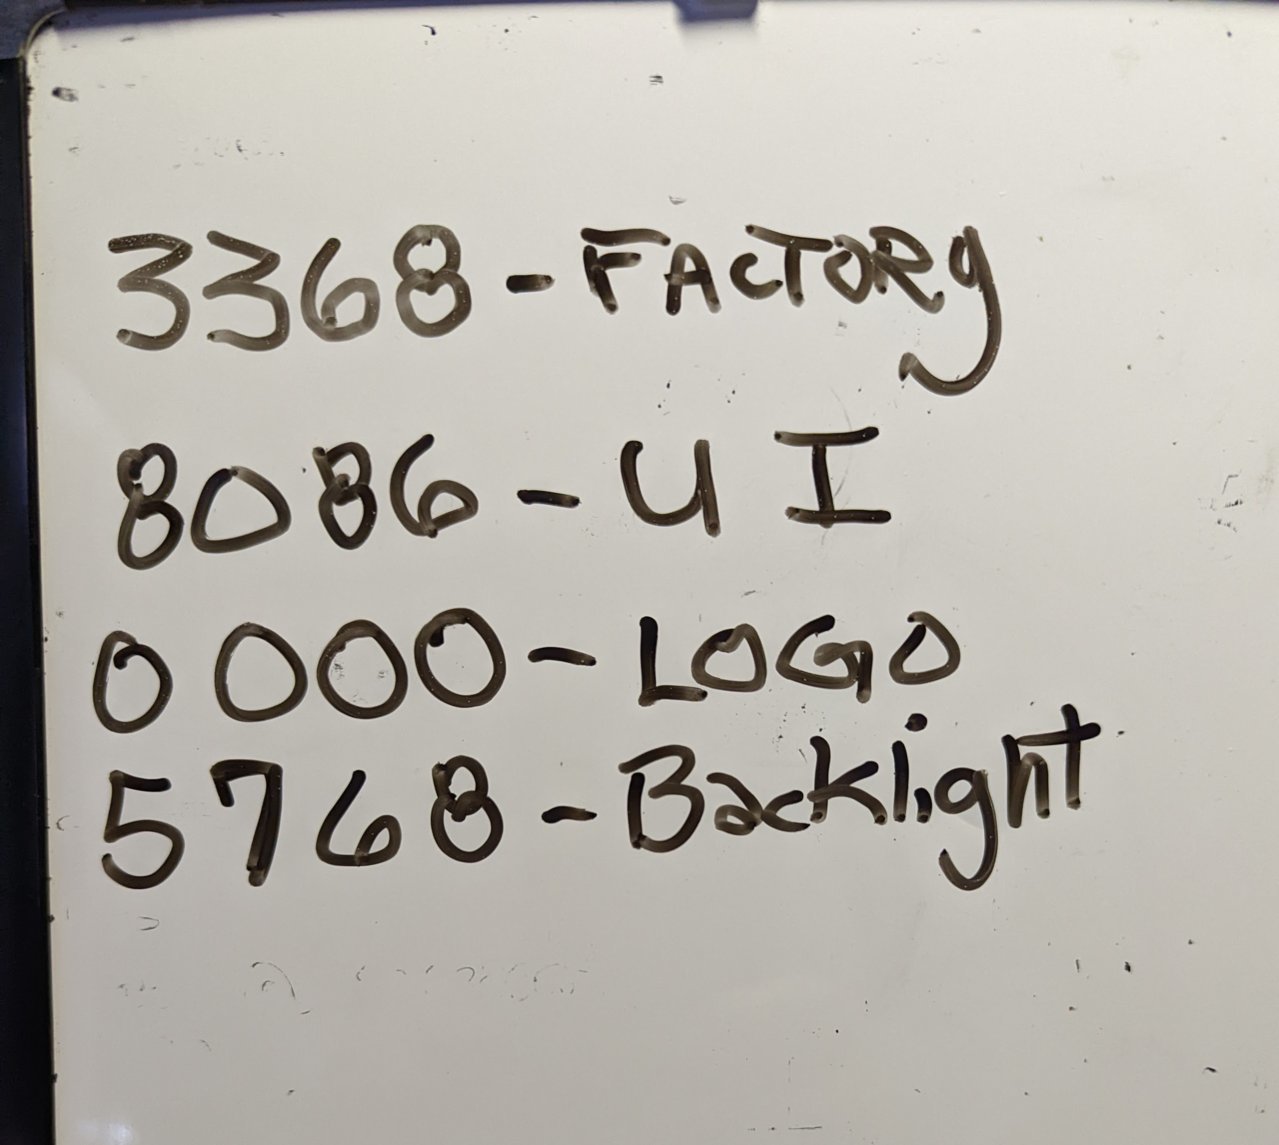 3368 - FACTORy
8086 - UI
0000 - LOGO
5768 - Backlight